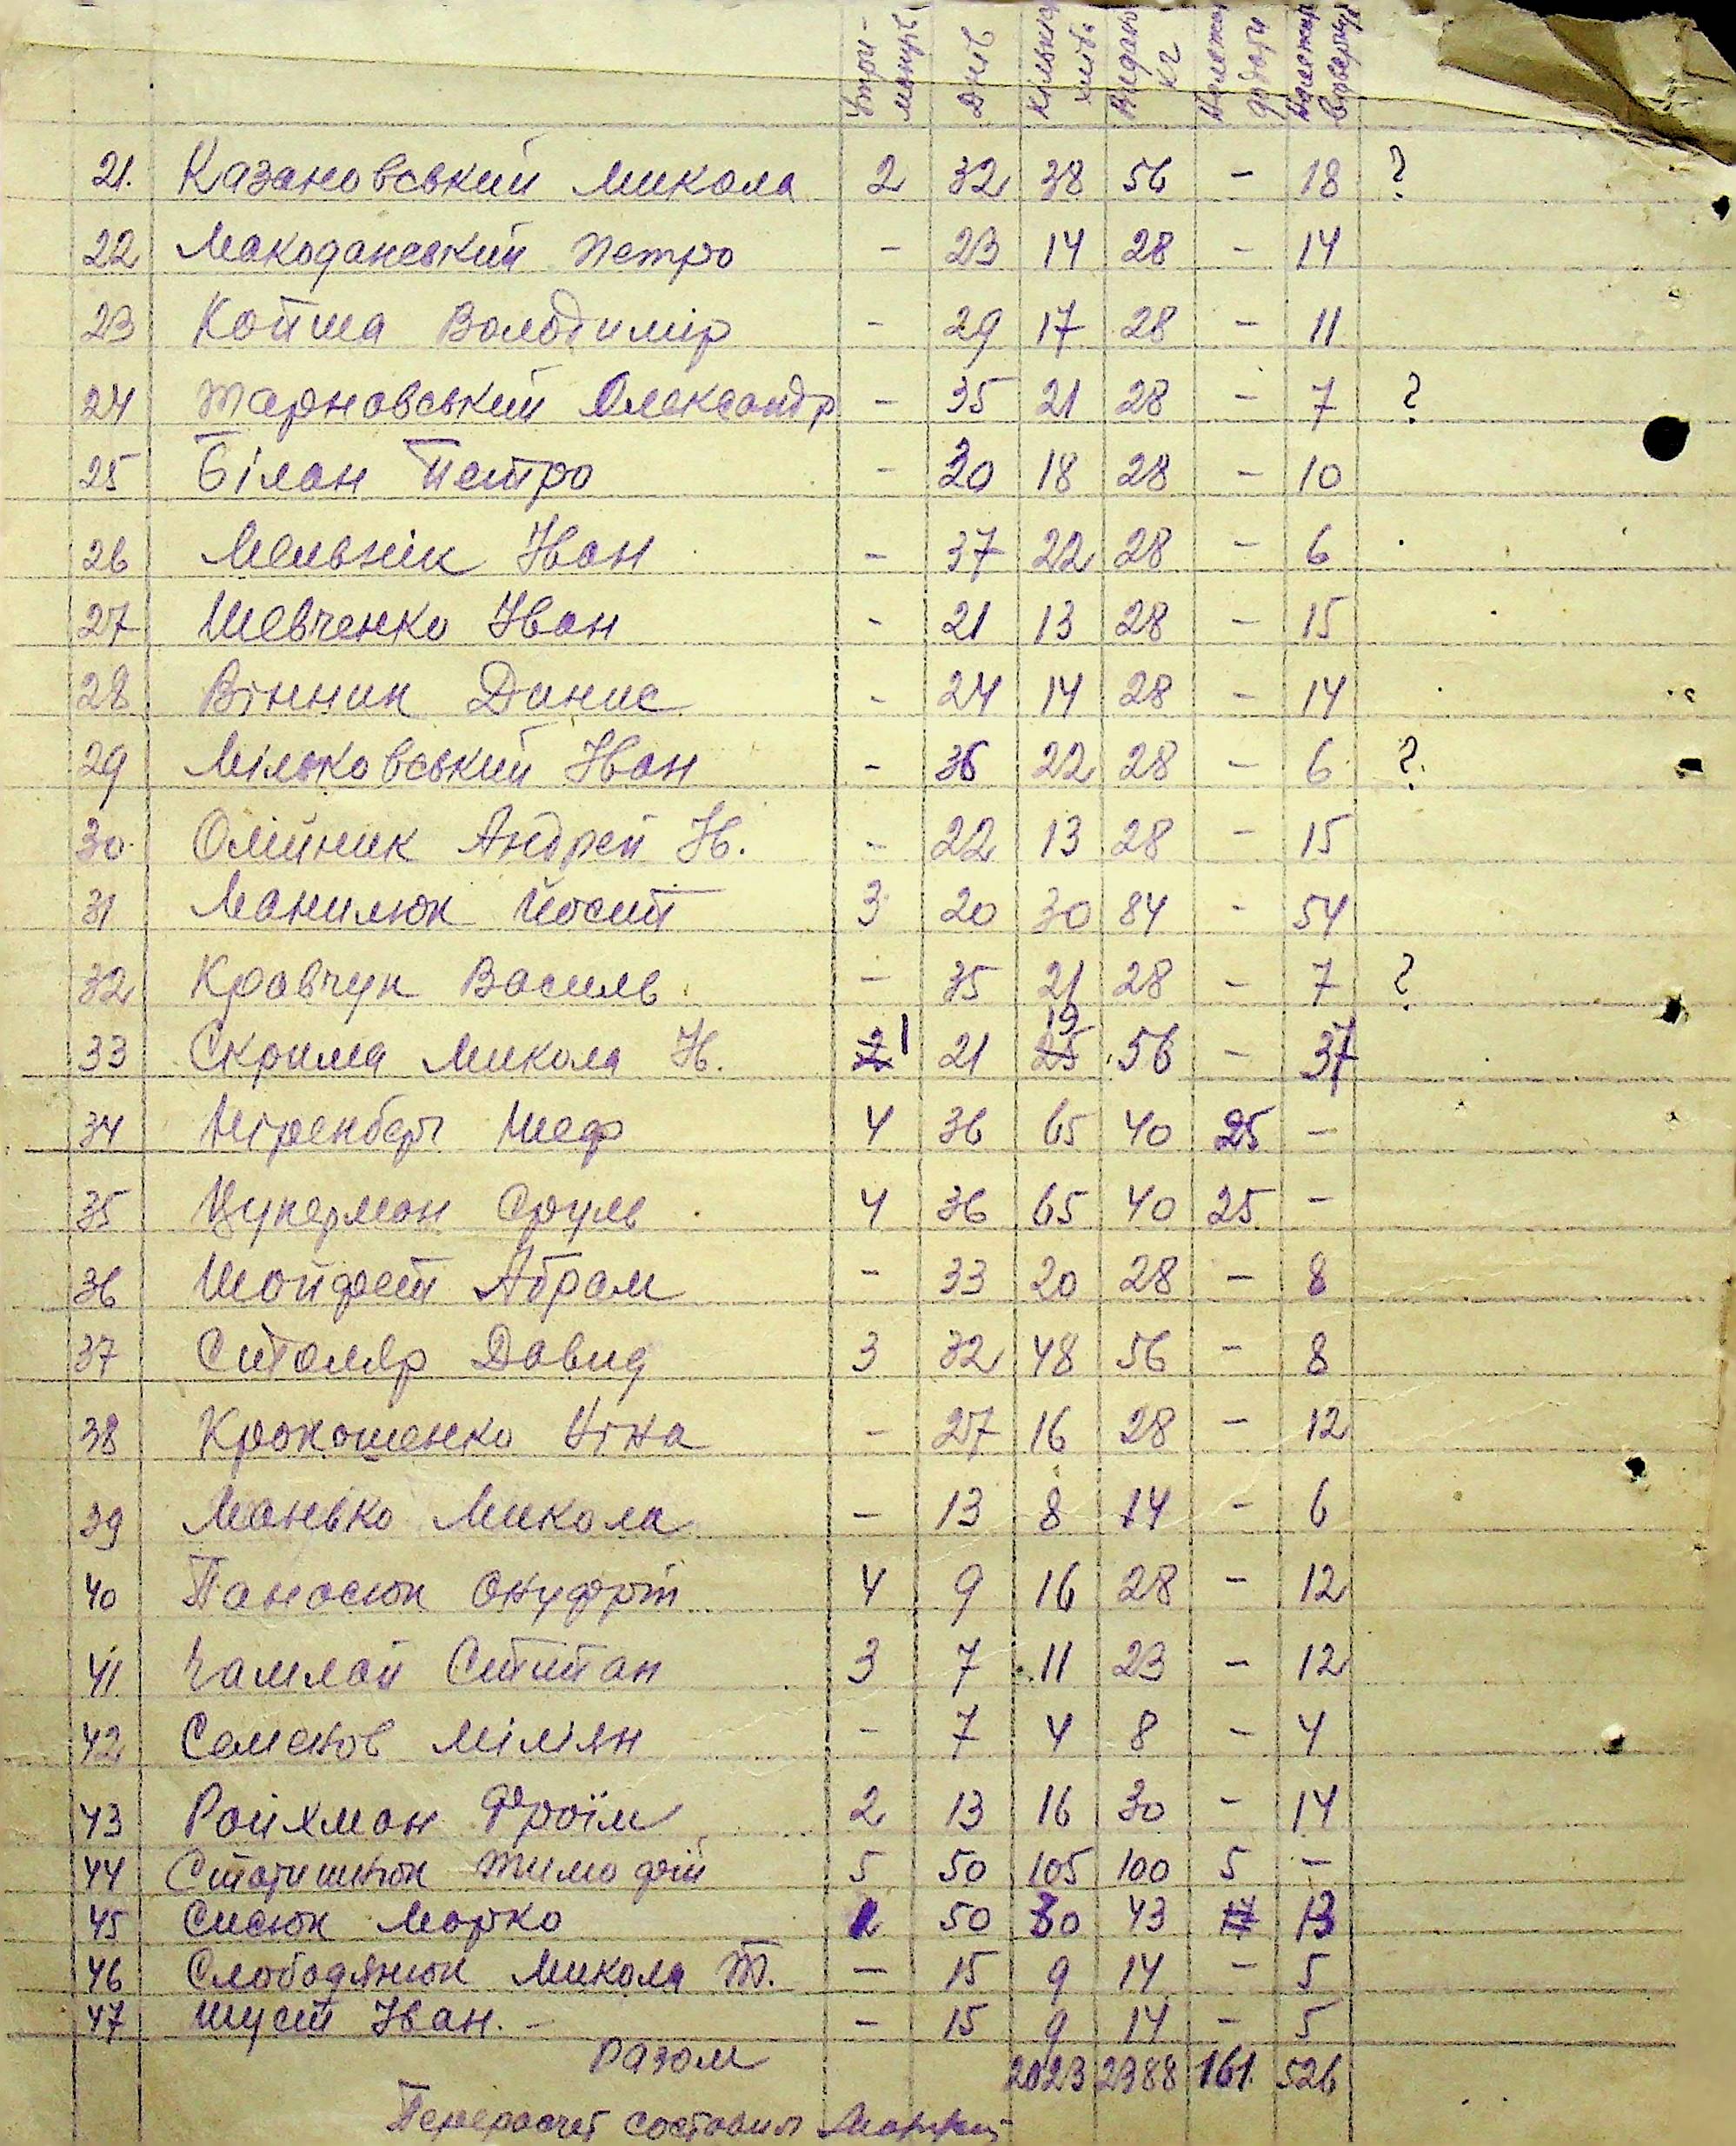 Утри-манців Днів Кількість хліба Видано кг Належить додати Належить
21. Казановський Микола 2 32 38 56 - 18 ?
22 Макоданський Петро - 23 14 28 - 14
23 Володимір - 29 17 28 - 11
24 Тарновський Олександр - 35 21 28 - 7 ?
25 Білан Петро - 30 18 28 - 10
26 Мельнік Іван - 37 22 28 - 6
27 Шевченко Іван - 21 13 28 - 15
28 Вінник Данис - 24 14 28 - 14
29 Мільковський Іван - 36 22 28 - 6 ?
30 Олійник Андрей Ів. - 22 13 28 - 15
31 Манилюк Йосип 3 20 30 84 - 54
32 Кравчук Василь - 35 21 28 - 7 ?
33 Скрима Микола Ів. 1 21 19 56 - 37
34 Нiренберг 4 36 65 40 25 -
35 Цукерман Сруль 4 36 65 40 25 -
36 Шойфет Абрам - 33 20 28 - 8
37 Столяр Давид 3 32 48 56 - 8
38 Крокошенко Ніна - 27 16 28 - 12
39 Манько Микола - 13 8 14 - 6
40 Панасюк Онуфрій 4 9 16 28 - 12
41 Чамлай Степан 3 7 11 23 - 12
42 Семенов - 7 4 8 - 4
43 Ройхман Фроїм 2 13 16 30 - 14
44 Тимофій 5 50 105 100 5 -
45 Сисюк Марко 50 30 43 13
46 Слободянюк Микола Т. - 15 9 14 - 5
47 Шуст Іван. - - 15 9 14 - 5
Разом 2023 2388 161. 526
Перерасчет составил